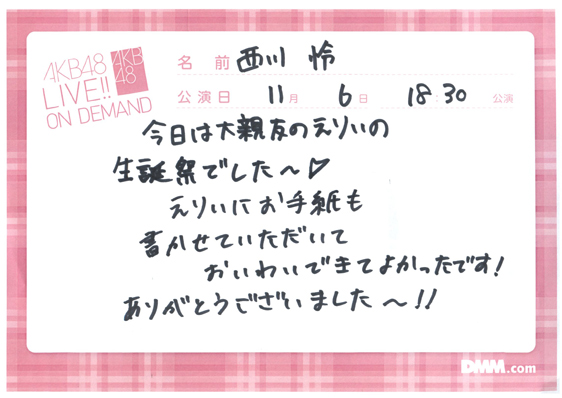 AKB48
LIVE!!
ON DEMAND
AKB
48
名 前 西川 怜
公演日 11月 6日 18:30 公演
今日は大親友のえりいの
生誕祭でした〜♡
えりいにお手紙も
書かせていただいて
おいわいできてよかったです!
ありがとうございました〜!!
DMM.com